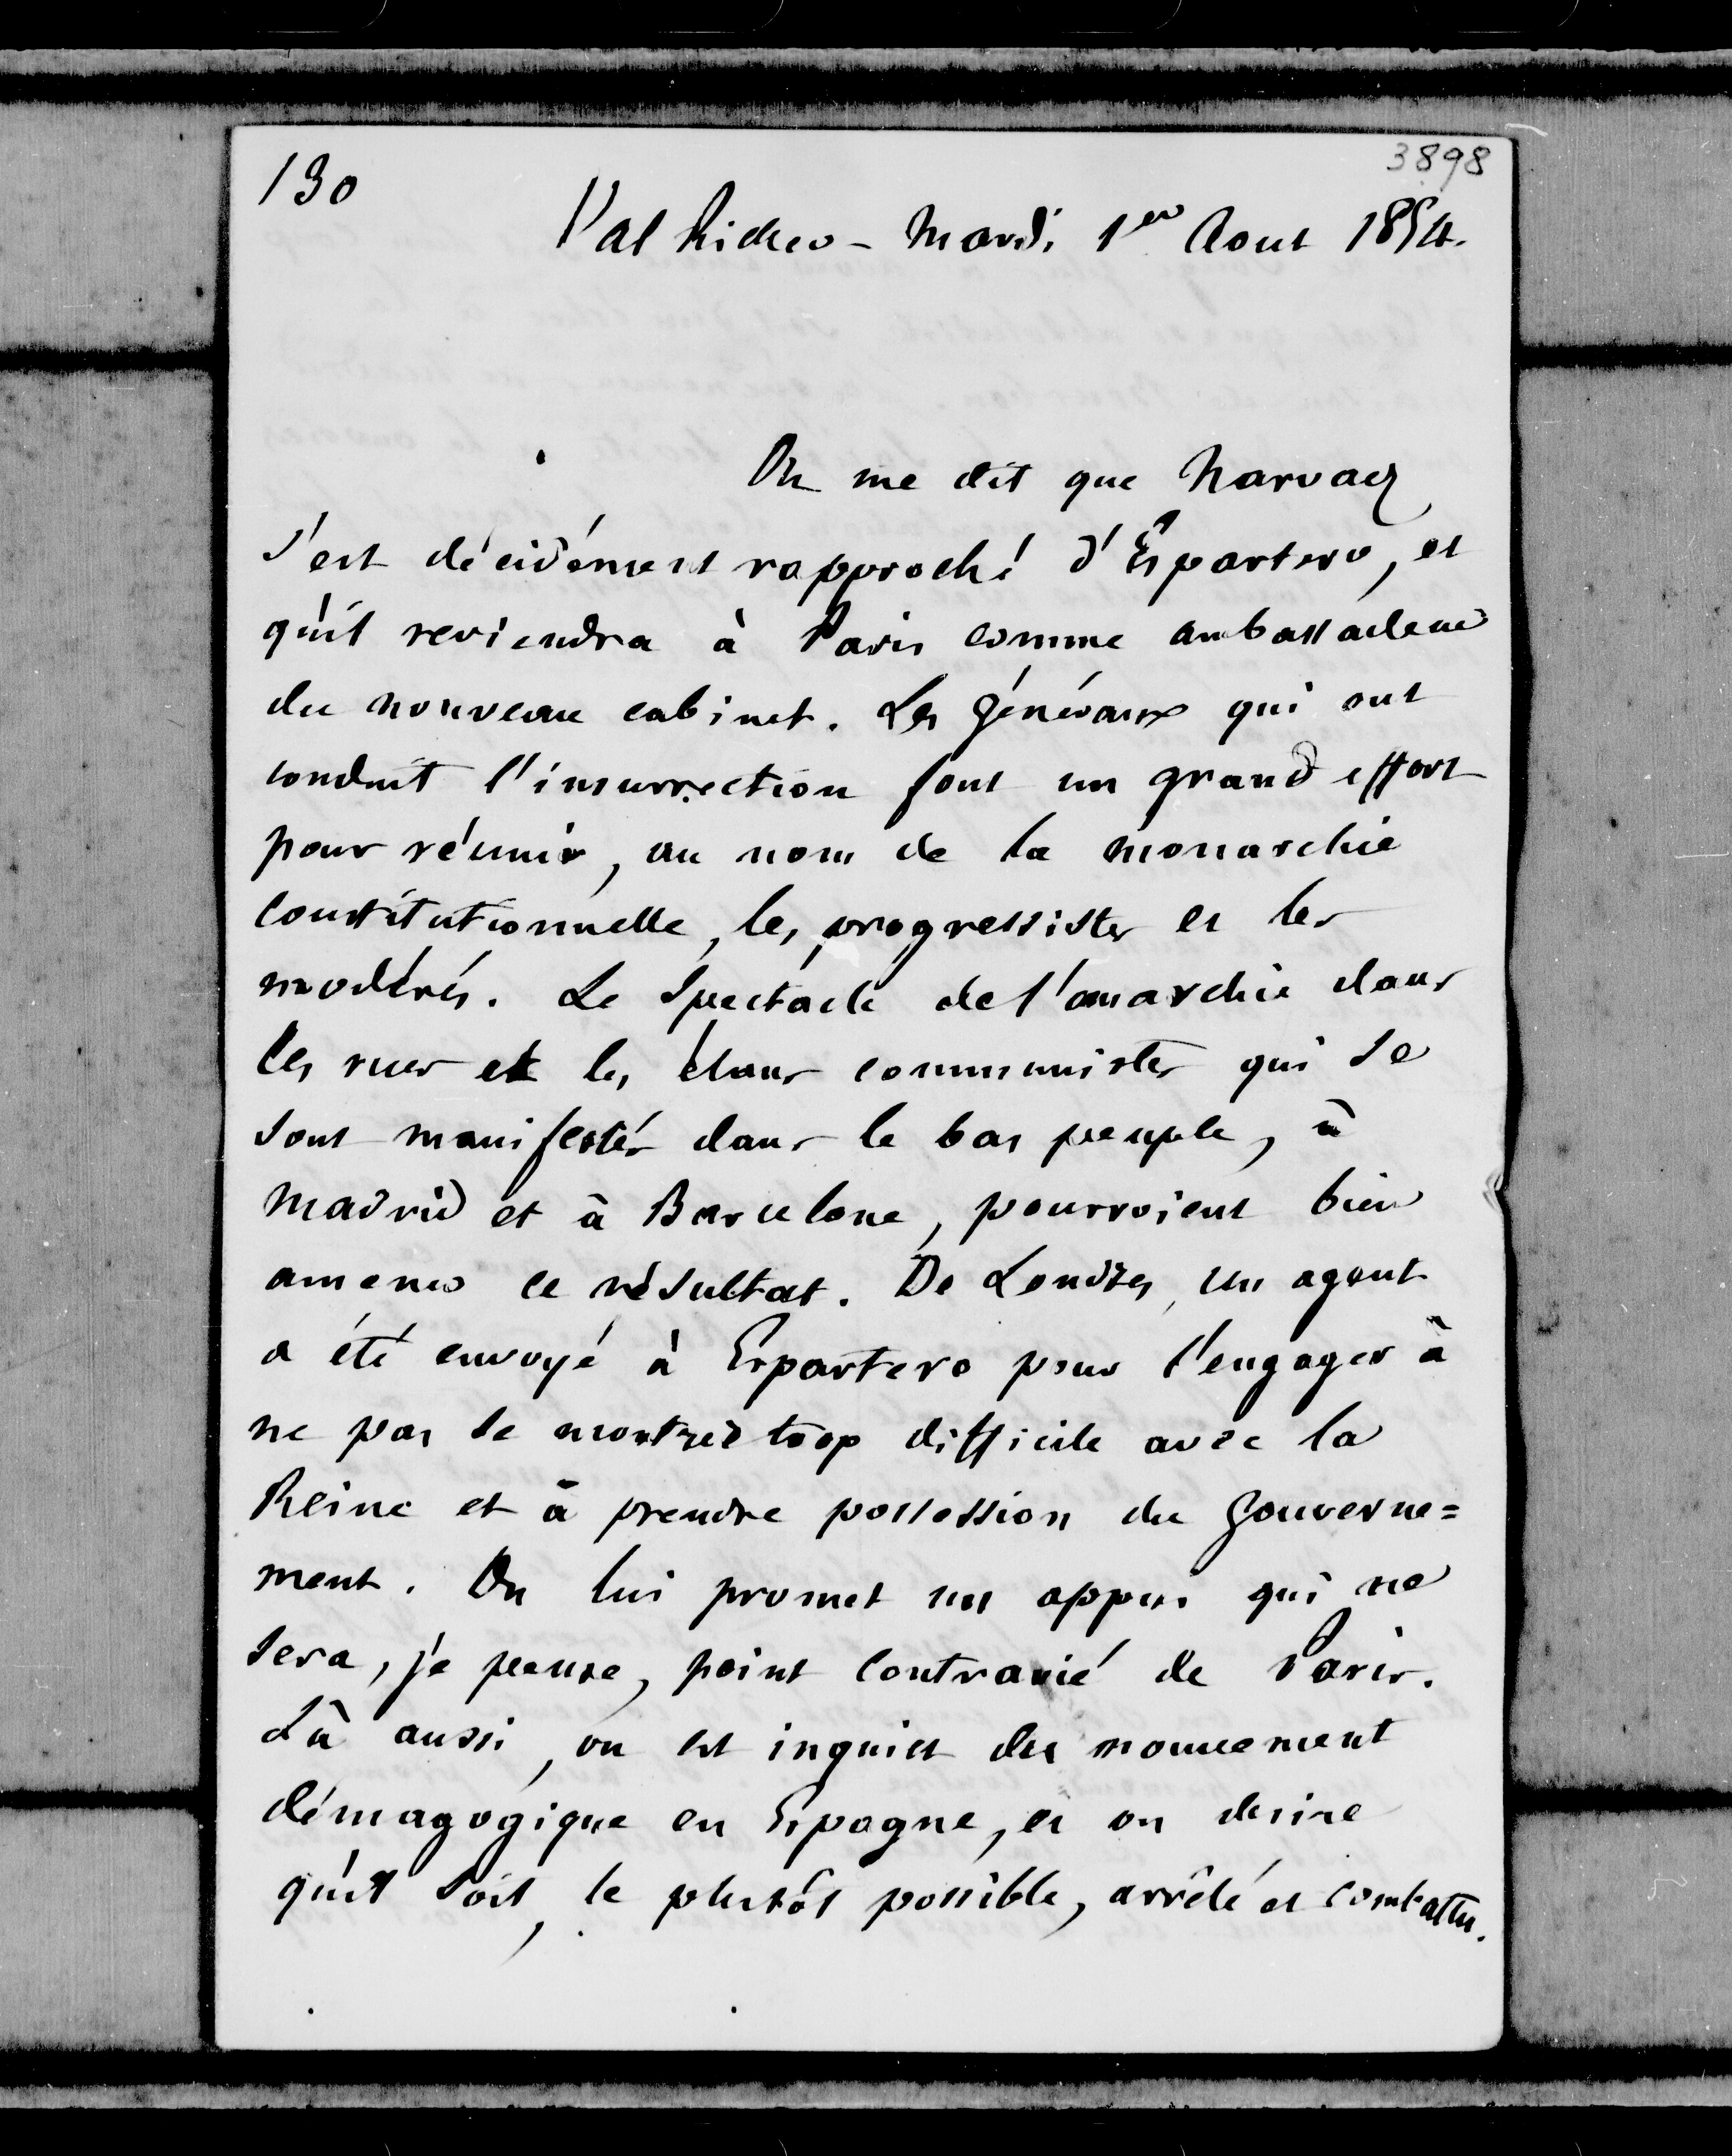 130
3898
Val Richer - Mardi 1er Aout 1854.
On me dit que Narvaez
s'est décidément rapproché d'Espartero, et
qu'il reviendra à Paris comme ambassadeur
du nouveau cabinet. Les généraux qui ont
conduit l'insurrection font un grand effort
pour réunir, au nom de la monarchie
constitutionnelle, les progressistes et les
modérés. Le spectacle de l'anarchie dans
les rues et les élans communistes qui se
sont manifestés dans le bas peuple, à
Madrid et à Barcelone, pourroient bien
amener ce résultat. De Londres, un agent
a été envoyé à Espartero pour l'engager à
ne pas se montrer trop difficile avec la
Reine et à prendre possession du gouverne=
ment. On lui promet un appui qui ne
sera, je pense, point contrarié de Paris.
Là aussi, on est inquiet du mouvement
démagogique en Espagne, et on desire
qu'il soit, le plutôt possible, arrêté et combattu.